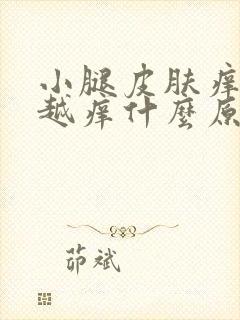 小腿皮肤痒
越痒什麼原
茆斌